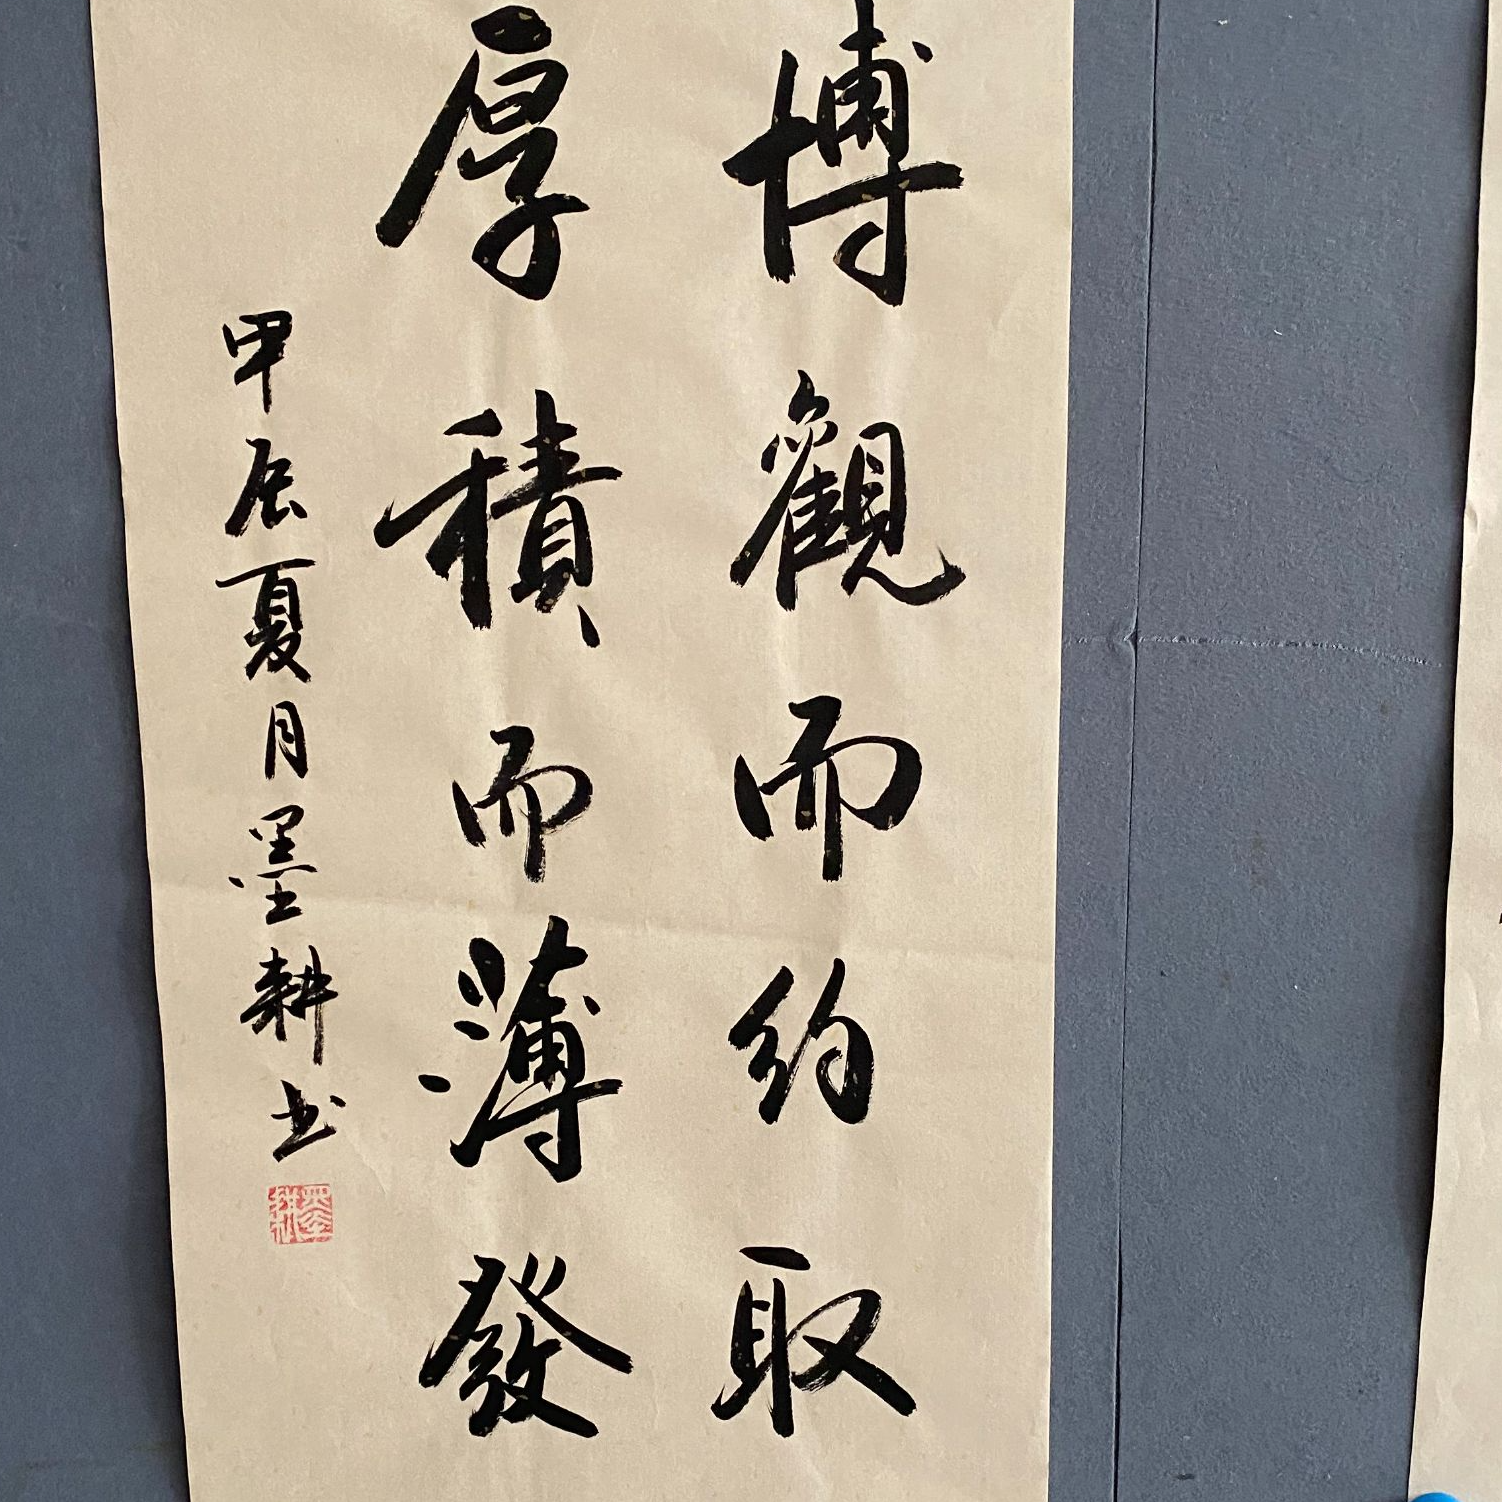 博觀而約取
厚積而薄發
甲辰夏月墨耕书
墨耕